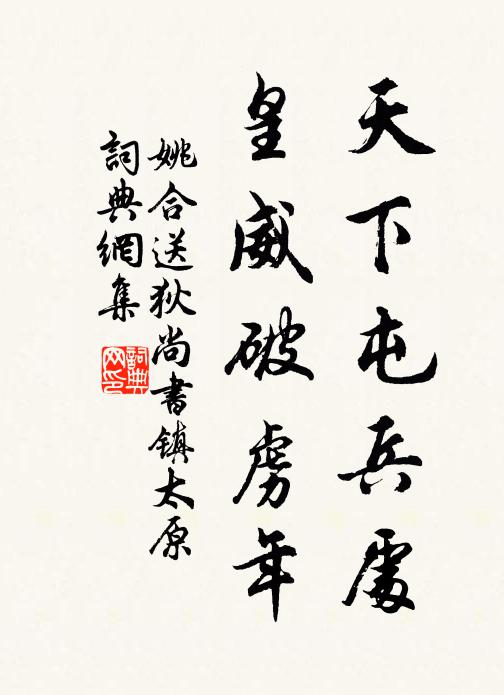 天下屯兵處
皇威破虜年
姚合送狄尚書鎮太原
詞典網集
詞典網印